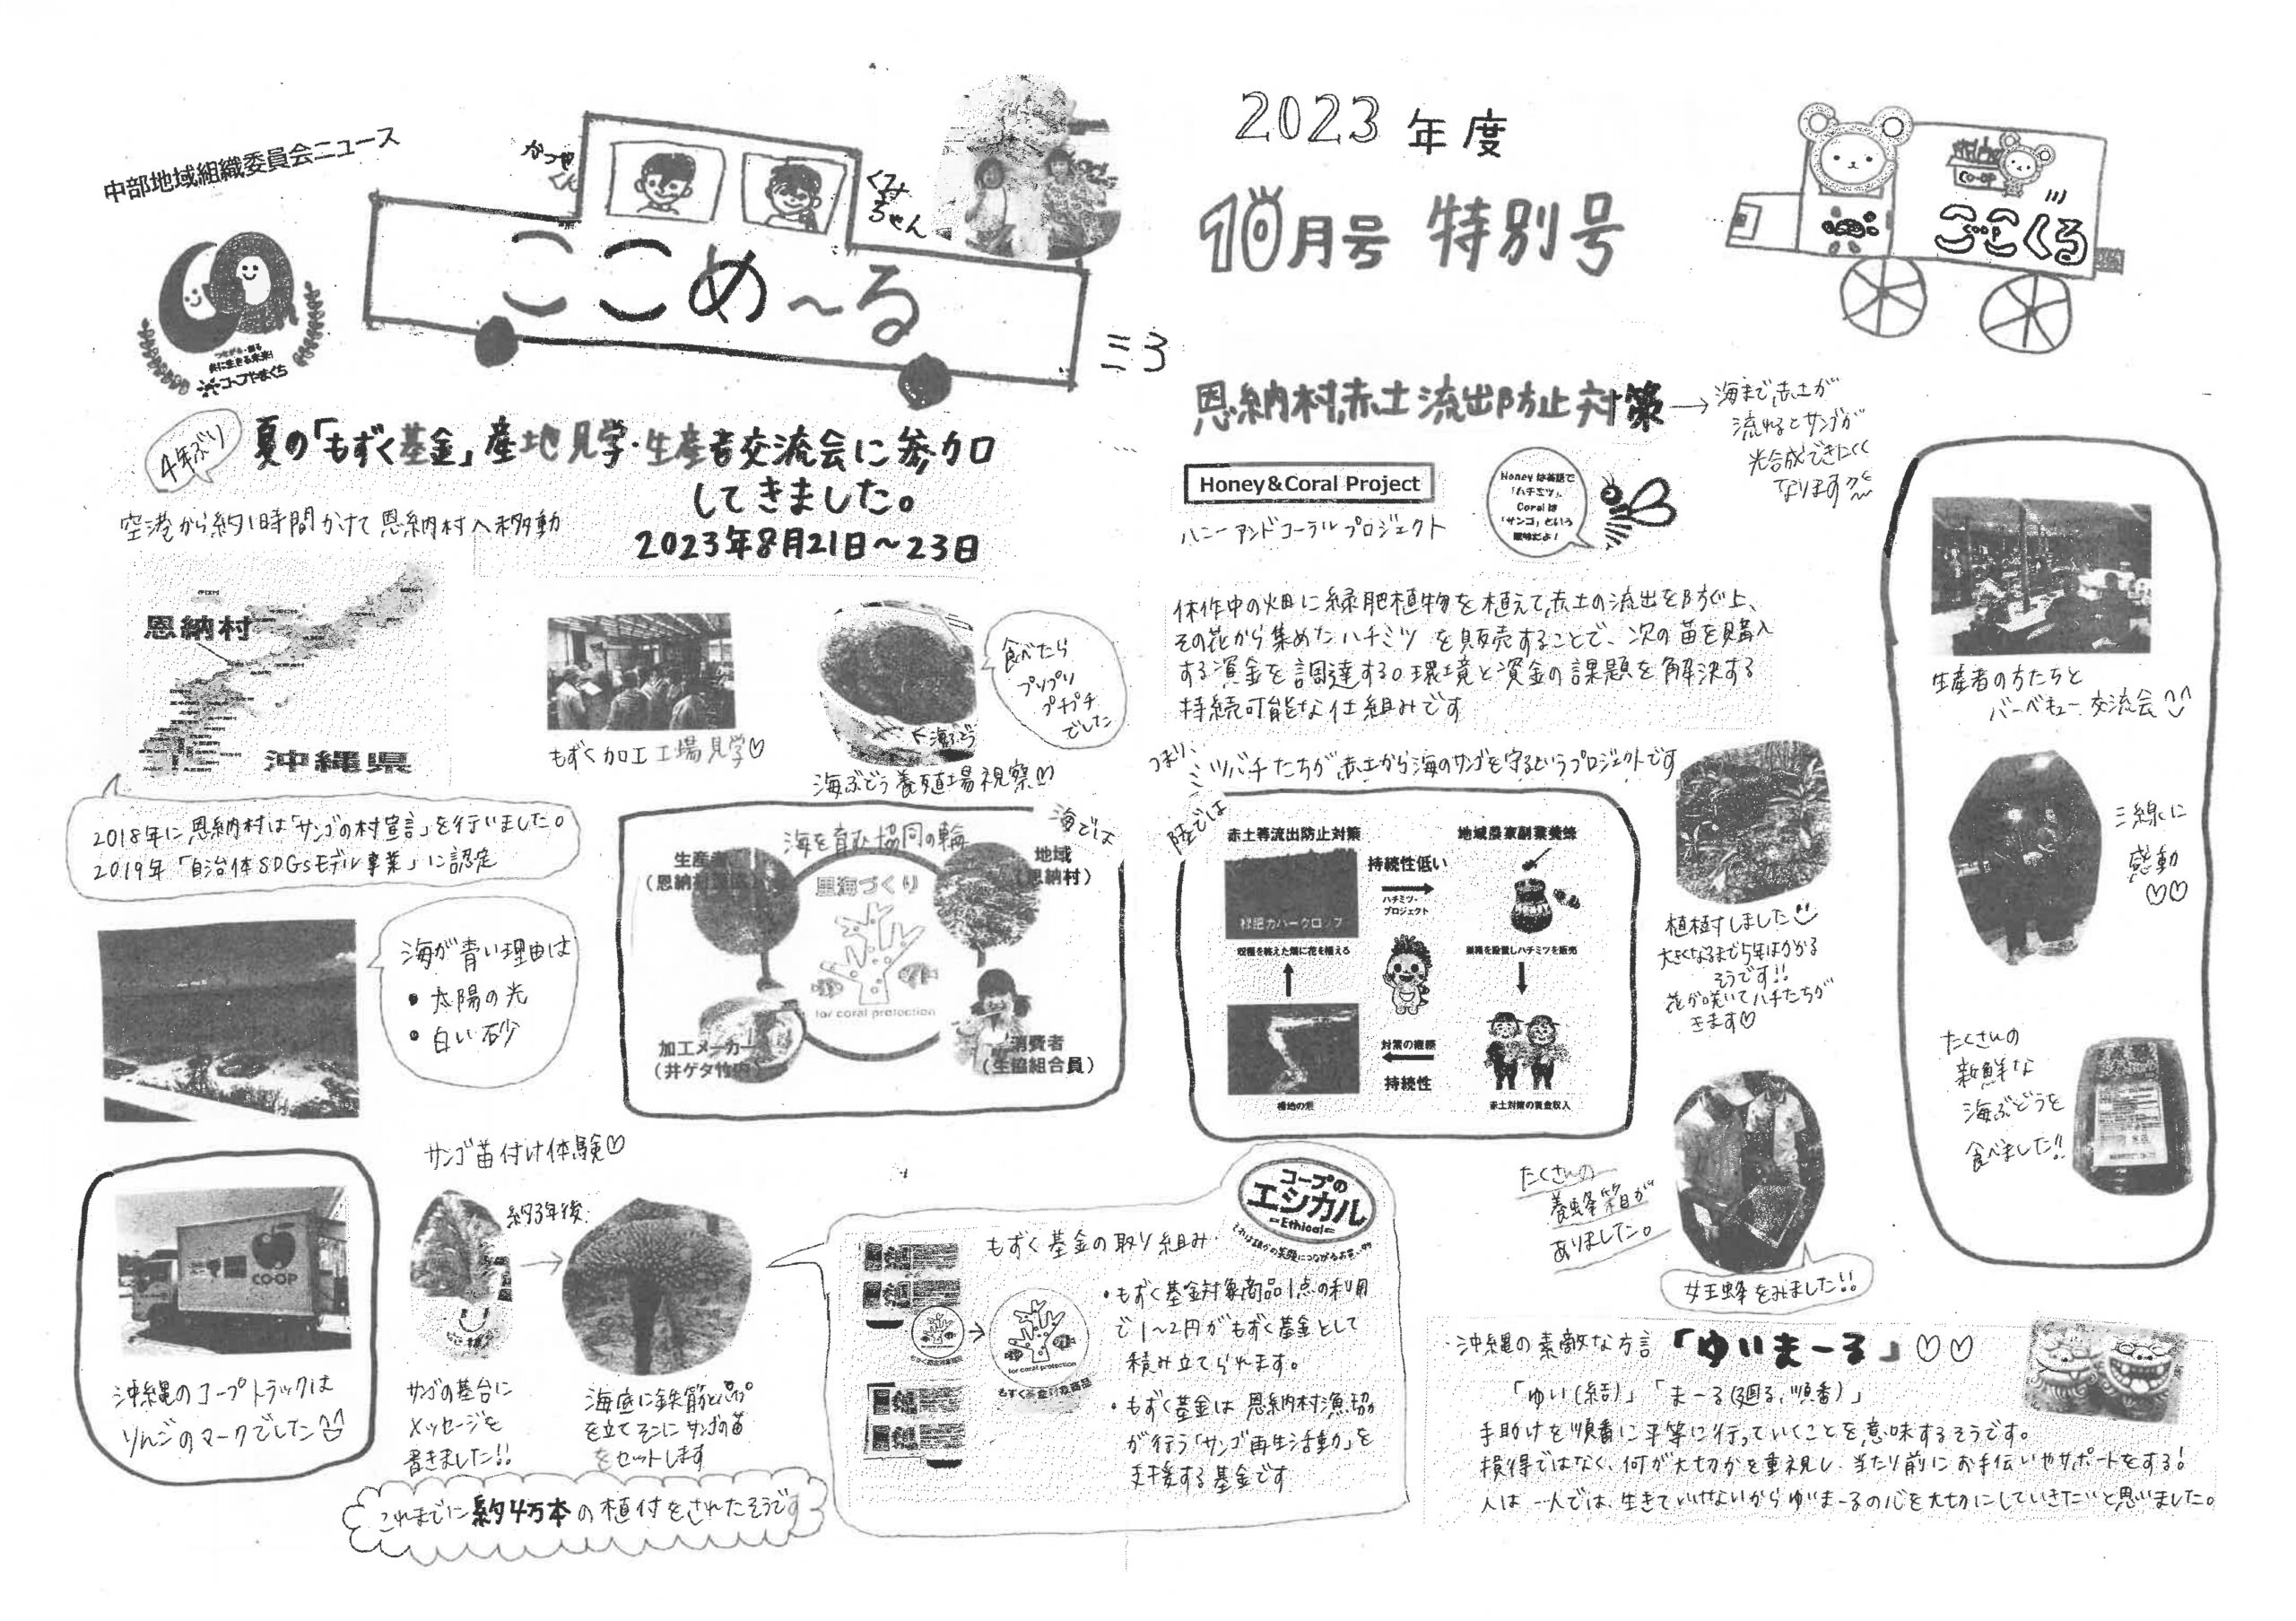 中部地域組織委員会ニュース
つながる・創る
共に生きる未来!
コープやまぐち
かつやくん
くみちゃん
ここめ〜る
2023年度
10月号 特別号
CO-OP
ここくる
4年ぶり
夏の「もずく基金」産地見学・生産者交流会に参加
してきました。
2023年8月21日〜23日
空港から約1時間かけて恩納村へ移動
恩納村
沖縄県
2018年に恩納村は「サンゴの村宣言」を行いました。
2019年「自治体SDGsモデル事業」に認定
もずく加工工場見学♡
海ぶどう
食べたら
プリプリ
プチプチ
でした
海ぶどう養殖場視察♡
海が青い理由は
・太陽の光
・白い砂
海では
海を育む協同の輪
生産者
(恩納村漁協)
地域
(恩納村)
里海づくり
for coral protection
加工メーカー
(井ゲタ竹内)
消費者
(生協組合員)
CO-OP
沖縄のコープトラックは
りんごのマークでした
サンゴ苗付け体験♡
約3年後
サンゴの基台に
メッセージを
書きました!!
海底に鉄筋とパイプ
を立てそこにサンゴの苗
をセットします
これまでに約4万本の植付をされたそうです
コープの
エシカル
Ethical
もずく基金の取り組み
for coral protection
・もずく基金対象商品1点の利用
で1〜2円がもずく基金として
積み立てられます。
・もずく基金は恩納村漁協
が行う「サンゴ再生活動」を
支援する基金です
恩納村赤土流出防止対策
→海まで赤土が
流れるとサンゴが
光合成できにくく
なります
Honey&Coral Project
ハニーアンドコーラルプロジェクト
Honeyは英語で
「ハチミツ」、
Coralは
「サンゴ」という
意味だよ!
休作中の畑に緑肥植物を植えて赤土の流出を防ぐ上、
その花から集めたハチミツを販売することで、次の苗を購入
する資金を調達する。環境と資金の課題を解決する
持続可能な仕組みです
つまり、ミツバチたちが赤土から海のサンゴを守るというプロジェクトです
陸では
赤土等流出防止対策
地域農家副業養蜂
持続性低い
ハチミツ・
プロジェクト
緑肥カバークロップ
収穫を終えた畑に花を植える
巣箱を設置しハチミツを販売
対策の継続
持続性
赤土対策の資金収入
植樹しました
大きくなるまで5年はかかる
そうです!!
花が咲いてハチたちが
きます♡
たくさんの
養蜂箱が
ありました。
女王蜂をみました!!
生産者の方たちと
バーベキュー交流会
三線に
感動
♡♡
たくさんの
新鮮な
海ぶどうを
食べました!!
沖縄の素敵な方言「ゆいまーる」♡♡
「ゆい(結)」「まーる(廻る、順番)」
手助けを順番に平等に行っていくことを意味するそうです。
損得ではなく、何が大切かを重視し、当たり前にお手伝いやサポートをする!
人は一人では、生きていけないからゆいまーるの心を大切にしていきたいと思いました。